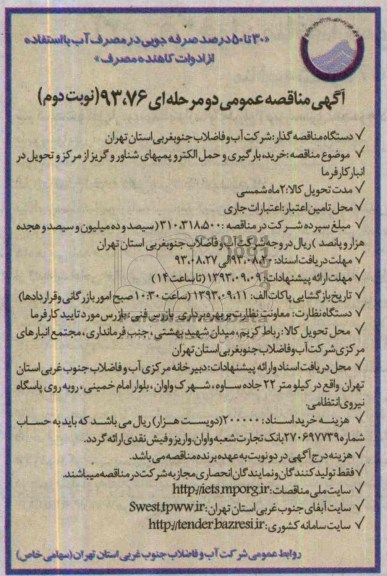 «۳۰ تا ۵۰ درصد صرفه جویی در مصرف آب با استفاده
از ادوات کاهنده مصرف»
آگهی مناقصه عمومی دو مرحله ای ۹۳،۷۶ (نوبت دوم)
✓ دستگاه مناقصه گذار: شرکت آب و فاضلاب جنوبغربی استان تهران
✓ موضوع مناقصه: خرید، بارگیری و حمل الکترو پمپهای شناور و گریز از مرکز و تحویل در
انبار کارفرما
✓ مدت تحویل کالا: ۲ ماه شمسی
✓ محل تامین اعتبار: اعتبارات جاری
✓ مبلغ سپرده شرکت در مناقصه: ۳۱۰،۳۱۸،۵۰۰ (سیصد و ده میلیون و سیصد و هجده
هزار و پانصد) ریال در وجه شرکت آب و فاضلاب جنوبغربی استان تهران
✓ مهلت دریافت اسناد: ۹۳،۰۸،۲۰ الی ۹۳،۰۸،۲۷
✓ مهلت ارائه پیشنهادات: ۱۳۹۳،۰۹،۰۹ (تا ساعت ۱۴)
✓ تاریخ بازگشایی پاکات الف: ۱۳۹۳،۰۹،۱۱ (ساعت ۱۰:۳۰ صبح امور بازرگانی و قراردادها)
✓ دستگاه نظارت: معاونت نظارت بر بهره برداری، بازرس فنی: بازرس مورد تایید کارفرما
✓ محل تحویل کالا: رباط کریم، میدان شهید بهشتی، جنب فرمانداری، مجتمع انبارهای
مرکزی شرکت آب و فاضلاب جنوبغربی استان تهران
✓ محل دریافت اسناد و ارائه پیشنهادات: دبیرخانه مرکزی آب و فاضلاب جنوب غربی استان
تهران واقع در کیلومتر ۲۲ جاده ساوه، شهرک واوان، بلوار امام خمینی، روبه روی پاسگاه
نیروی انتظامی.
✓ هزینه خرید اسناد: ۲۰۰۰۰۰ (دویست هزار) ریال می باشد که باید به حساب
شماره ۲۷۰۶۹۷۷۳۹ بانک تجارت شعبه واوان واریز و فیش نقدی ارائه گردد.
✓ هزینه درج آگهی در دو نوبت به عهده برنده مناقصه می باشد.
✓ فقط تولید کنندگان و نمایندگان انحصاری مجاز به شرکت در مناقصه میباشند.
✓ سایت ملی مناقصات: http://iets.mporg.ir
✓ سایت آبفای جنوب غربی استان تهران: Swest.tpww.ir
✓ سایت سامانه کشوری: http://tender.bazresi.ir
روابط عمومی شرکت آب و فاضلاب جنوب غربی استان تهران (سهامی خاص)